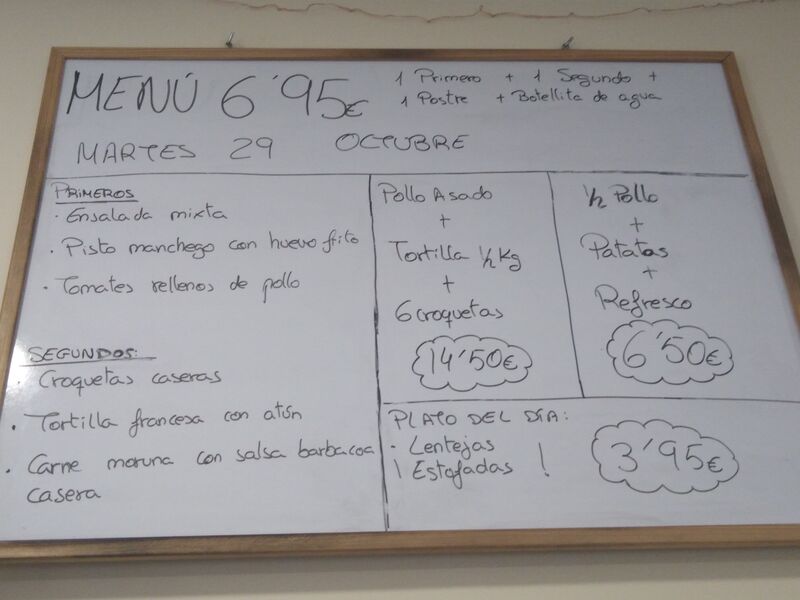 MENÚ 6'95€
1 Primero + 1 Segundo +
1 Postre + Botellita de agua
MARTES 29 OCTUBRE
PRIMEROS
· Ensalada mixta
· Pisto manchego con huevo frito
· Tomates rellenos de pollo
SEGUNDOS:
· Croquetas caseras
· Tortilla francesa con atún
· Carne moruna con salsa barbacoa
casera
Pollo Asado
+
Tortilla 1/2 Kg
+
6 croquetas
14'50€
1/2 Pollo
+
Patatas
+
Refresco
6'50€
PLATO DEL DÍA:
· Lentejas
\ Estofadas !
3'95€